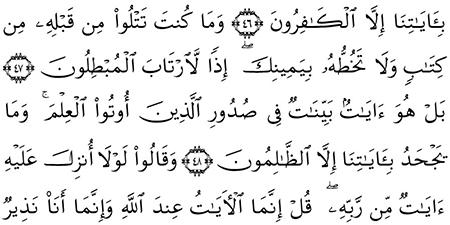 بِـَٔايَـٰتِنَا إِلَّا ٱلْكَـٰفِرُونَ ﴿٤٦﴾ وَمَا كُنتَ تَتْلُواْ مِن قَبْلِهِۦ مِن
كِتَـٰبٍ وَلَا تَخُطُّهُۥ بِيَمِينِكَ ۖ إِذًا لَّٱرْتَابَ ٱلْمُبْطِلُونَ ﴿٤٧﴾
بَلْ هُوَ ءَايَـٰتٌۢ بَيِّنَـٰتٌ فِى صُدُورِ ٱلَّذِينَ أُوتُواْ ٱلْعِلْمَ ۚ وَمَا
يَجْحَدُ بِـَٔايَـٰتِنَا إِلَّا ٱلظَّـٰلِمُونَ ﴿٤٨﴾ وَقَالُواْ لَوْلَا أُنزِلَ عَلَيْهِ
ءَايَـٰتٌ مِّن رَّبِّهِۦ ۖ قُلْ إِنَّمَا ٱلْأَيَـٰتُ عِندَ ٱللَّهِ وَإِنَّمَا أَنَا۠ نَذِيرٌ